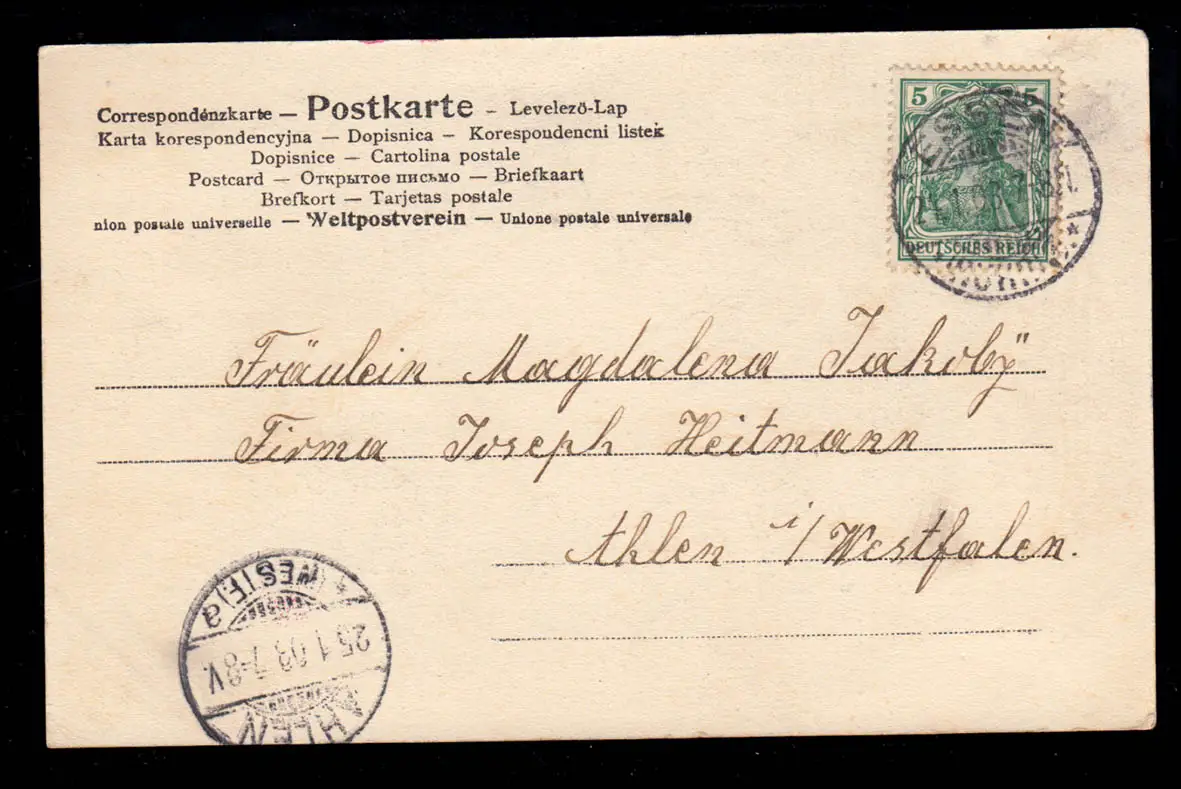 Correspondénzkarte — Postkarte – Levelezö-Lap
Karta korespondencyjna — Dopisnica — Korespoudencni listek
Dopisnice — Cartolina postale
Postcard — Открытое письмо — Briefkaart
Brefkort — Tarjetas postale
nion postale universelle — Weltpostverein — Unione postale universale
5 5
DEUTSCHES REICH
Fräulein Magdalena Jakoby"
Firma Joseph Heitmann
Ahlen i/Westfalen.
(WESTF.) a
25.1.03.7-8V.
AHLEN